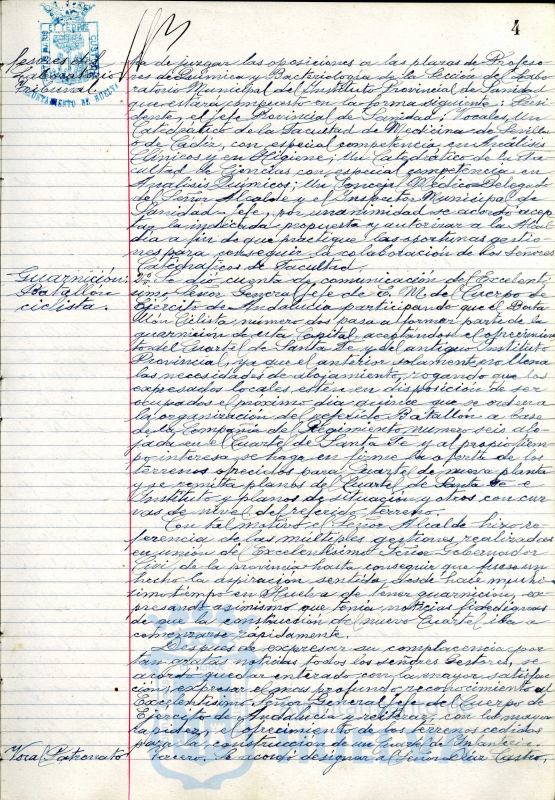 4
AYUNTAMIENTO DE HUELVA
Laboratorio
Tribunal
ha de juzgar las oposiciones a las plazas de Profeso-
res de Química y Bacteriología de la Sección de Labo-
ratorio Municipal del Instituto Provincial de Sanidad
que estará compuesto en la forma siguiente: Presi-
dente, el Jefe Provincial de Sanidad; Vocales, Un
Catedrático de la Facultad de Medicina de Sevilla
o de Cádiz, con especial competencia en Análisis
Clínicos y en Higiene; Un Catedrático de la Fa-
cultad de Ciencias con especial competencia en
Análisis Químicos; Un Concejal Médico Delegado
del Señor Alcalde y el Inspector Municipal de
Sanidad Jefe, por unanimidad se acordó acep-
tar la indicada propuesta y autorizar a la Alcal-
día a fin de que practique las oportunas gestio-
nes para conseguir la colaboración de los Señores
Catedráticos de Facultad.
Guarnición:
Batallón
ciclista.
2º. Se dió cuenta de comunicación del Excelentí-
simo Señor General Jefe de E. M. del Cuerpo de
Ejército de Andalucía participando que el Bata-
llón Ciclista número dos pasa a formar parte de la
guarnición de esta Capital, aceptando el ofrecimien-
to del Cuartel de Santa Fe y del antiguo Instituto
Provincial, ya que el anterior solamente no llena
las necesidades de alojamiento, rogando que los
expresados locales estén en disposición de ser
ocupados el próximo día quince que se ordena
la organización del referido Batallón a base
de la Compañía del Regimiento número seis alo-
jada en el Cuartel de Santa Fe y al propio tiem-
po interesa se haga en firme la oferta de los
terrenos ofrecidos para Cuartel de nueva planta
y se remita planos del Cuartel de Santa Fe e
Instituto y planos de situación y otros con cur-
vas de nivel del referido terreno.
Con tal motivo el Señor Alcalde hizo re-
ferencia de las múltiples gestiones realizadas
en unión del Excelentísimo Señor Gobernador
Civil de la provincia hasta conseguir que fuese un
hecho la aspiración sentida desde hace muchí-
simo tiempo en Huelva de tener guarnición, ex-
presando asimismo que tenía noticias fidedignas
de que la construcción del nuevo Cuartel iba a
comenzarse rápidamente.
Después de expresar su complacencia por
tan gratas noticias todos los señores Gestores, se
acordó quedar enterado con la mayor satisfac-
ción, expresar el más profundo reconocimiento al
Excelentísimo Señor General Jefe del Cuerpo de
Ejército de Andalucía y reiterar, con la mayor
rapidez, el ofrecimiento de los terrenos cedidos
para la construcción de un Cuartel de Infantería.
Vocal Patronato
Tercero. Se acordó designar al Señor Díaz Castro,